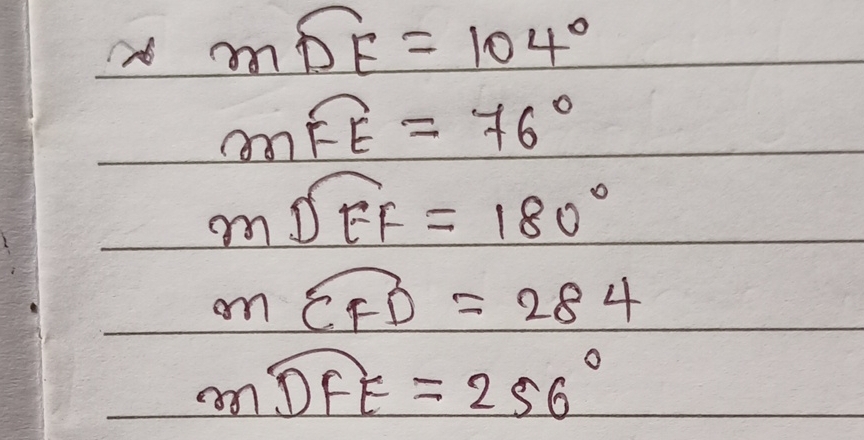 m DE = 104°
m FE = 76°
m DEF = 180°
m EFD = 284
m DFE = 256°